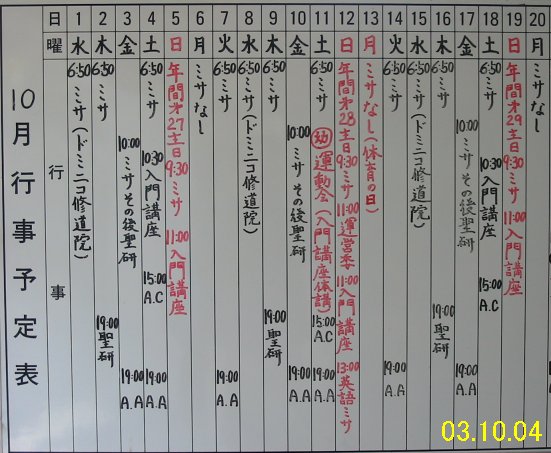 10月行事予定表
日 1 2 3 4 5 6 7 8 9 10 11 12 13 14 15 16 17 18 19 20
曜 水 木 金 土 日 月 火 水 木 金 土 日 月 火 水 木 金 土 日 月
行事
6:50 ミサ(ドミニコ修道院)
6:50 ミサ 19:00 聖研
10:00 ミサ その後聖研 19:00 A.A
6:50 ミサ 10:30 入門講座 15:00 A.C 19:00 A.A
年間才27主日 9:30 ミサ 11:00 入門講座
ミサなし
6:50 ミサ 19:00 A.A
6:50 ミサ(ドミニコ修道院)
6:50 ミサ 19:00 聖研
10:00 ミサ その後聖研 19:00 A.A
6:50 ミサ 幼 運動会(入門講座休講) 15:00 A.C 19:00 A.A
年間才28主日 9:30 ミサ 11:00 運営委 11:00 入門講座 13:00 英語ミサ
ミサなし(体育の日)
6:50 ミサ 19:00 A.A
6:50 ミサ(ドミニコ修道院)
6:50 ミサ 19:00 聖研
10:00 ミサ その後聖研 19:00 A.A
6:50 ミサ 10:30 入門講座 15:00 A.C
年間才29主日 9:30 ミサ 11:00 入門講座
ミサなし
03.10.04